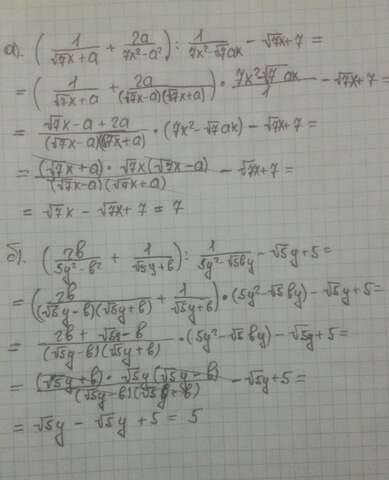 а). (1/(√7x+a) + 2a/(7x²-a²)) : 1/(7x²-√7ax) - √7x+7 =
= (1/(√7x+a) + 2a/((√7x-a)(√7x+a))) · (7x²-√7ax)/1 - √7x+7 =
= (√7x-a+2a)/((√7x-a)(√7x+a)) · (7x²-√7ax) - √7x+7 =
= ((√7x+a)·√7x(√7x-a))/((√7x-a)(√7x+a)) - √7x+7 =
= √7x - √7x+7 = 7
б). (2b/(5y²-b²) + 1/(√5y+b)) : 1/(5y²-√5by) - √5y+5 =
= (2b/((√5y-b)(√5y+b)) + 1/(√5y+b)) · (5y²-√5by) - √5y+5 =
= (2b+√5y-b)/((√5y-b)(√5y+b)) · (5y²-√5by) - √5y+5 =
= ((√5y+b)·√5y(√5y-b))/((√5y-b)(√5y+b)) - √5y+5 =
= √5y - √5y+5 = 5